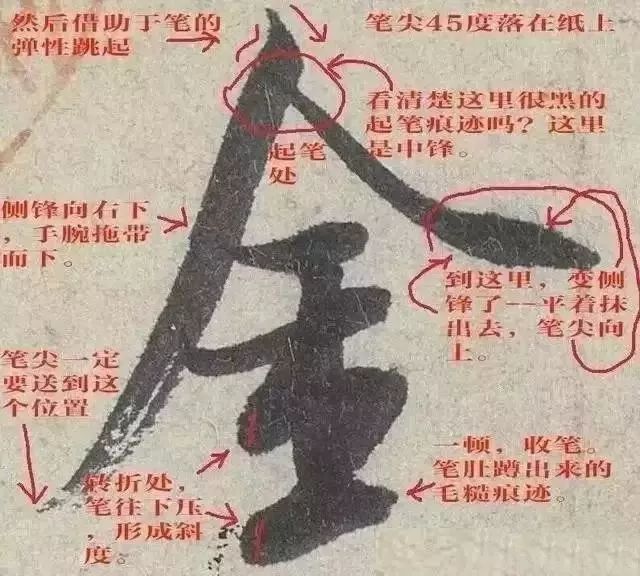 然后借助于笔的
弹性跳起
笔尖45度落在纸上
看清楚这里很黑的
起笔痕迹吗？这里
是中锋。
起笔
处
侧锋向右下
，手腕拖带
而下。
到这里，变侧
锋了--平着抹
出去，笔尖向
上。
笔尖一定
要送到这
个位置
转折处，
笔往下压
，形成斜
度。
一顿，收笔。
笔肚蹲出来的
毛糙痕迹。
金